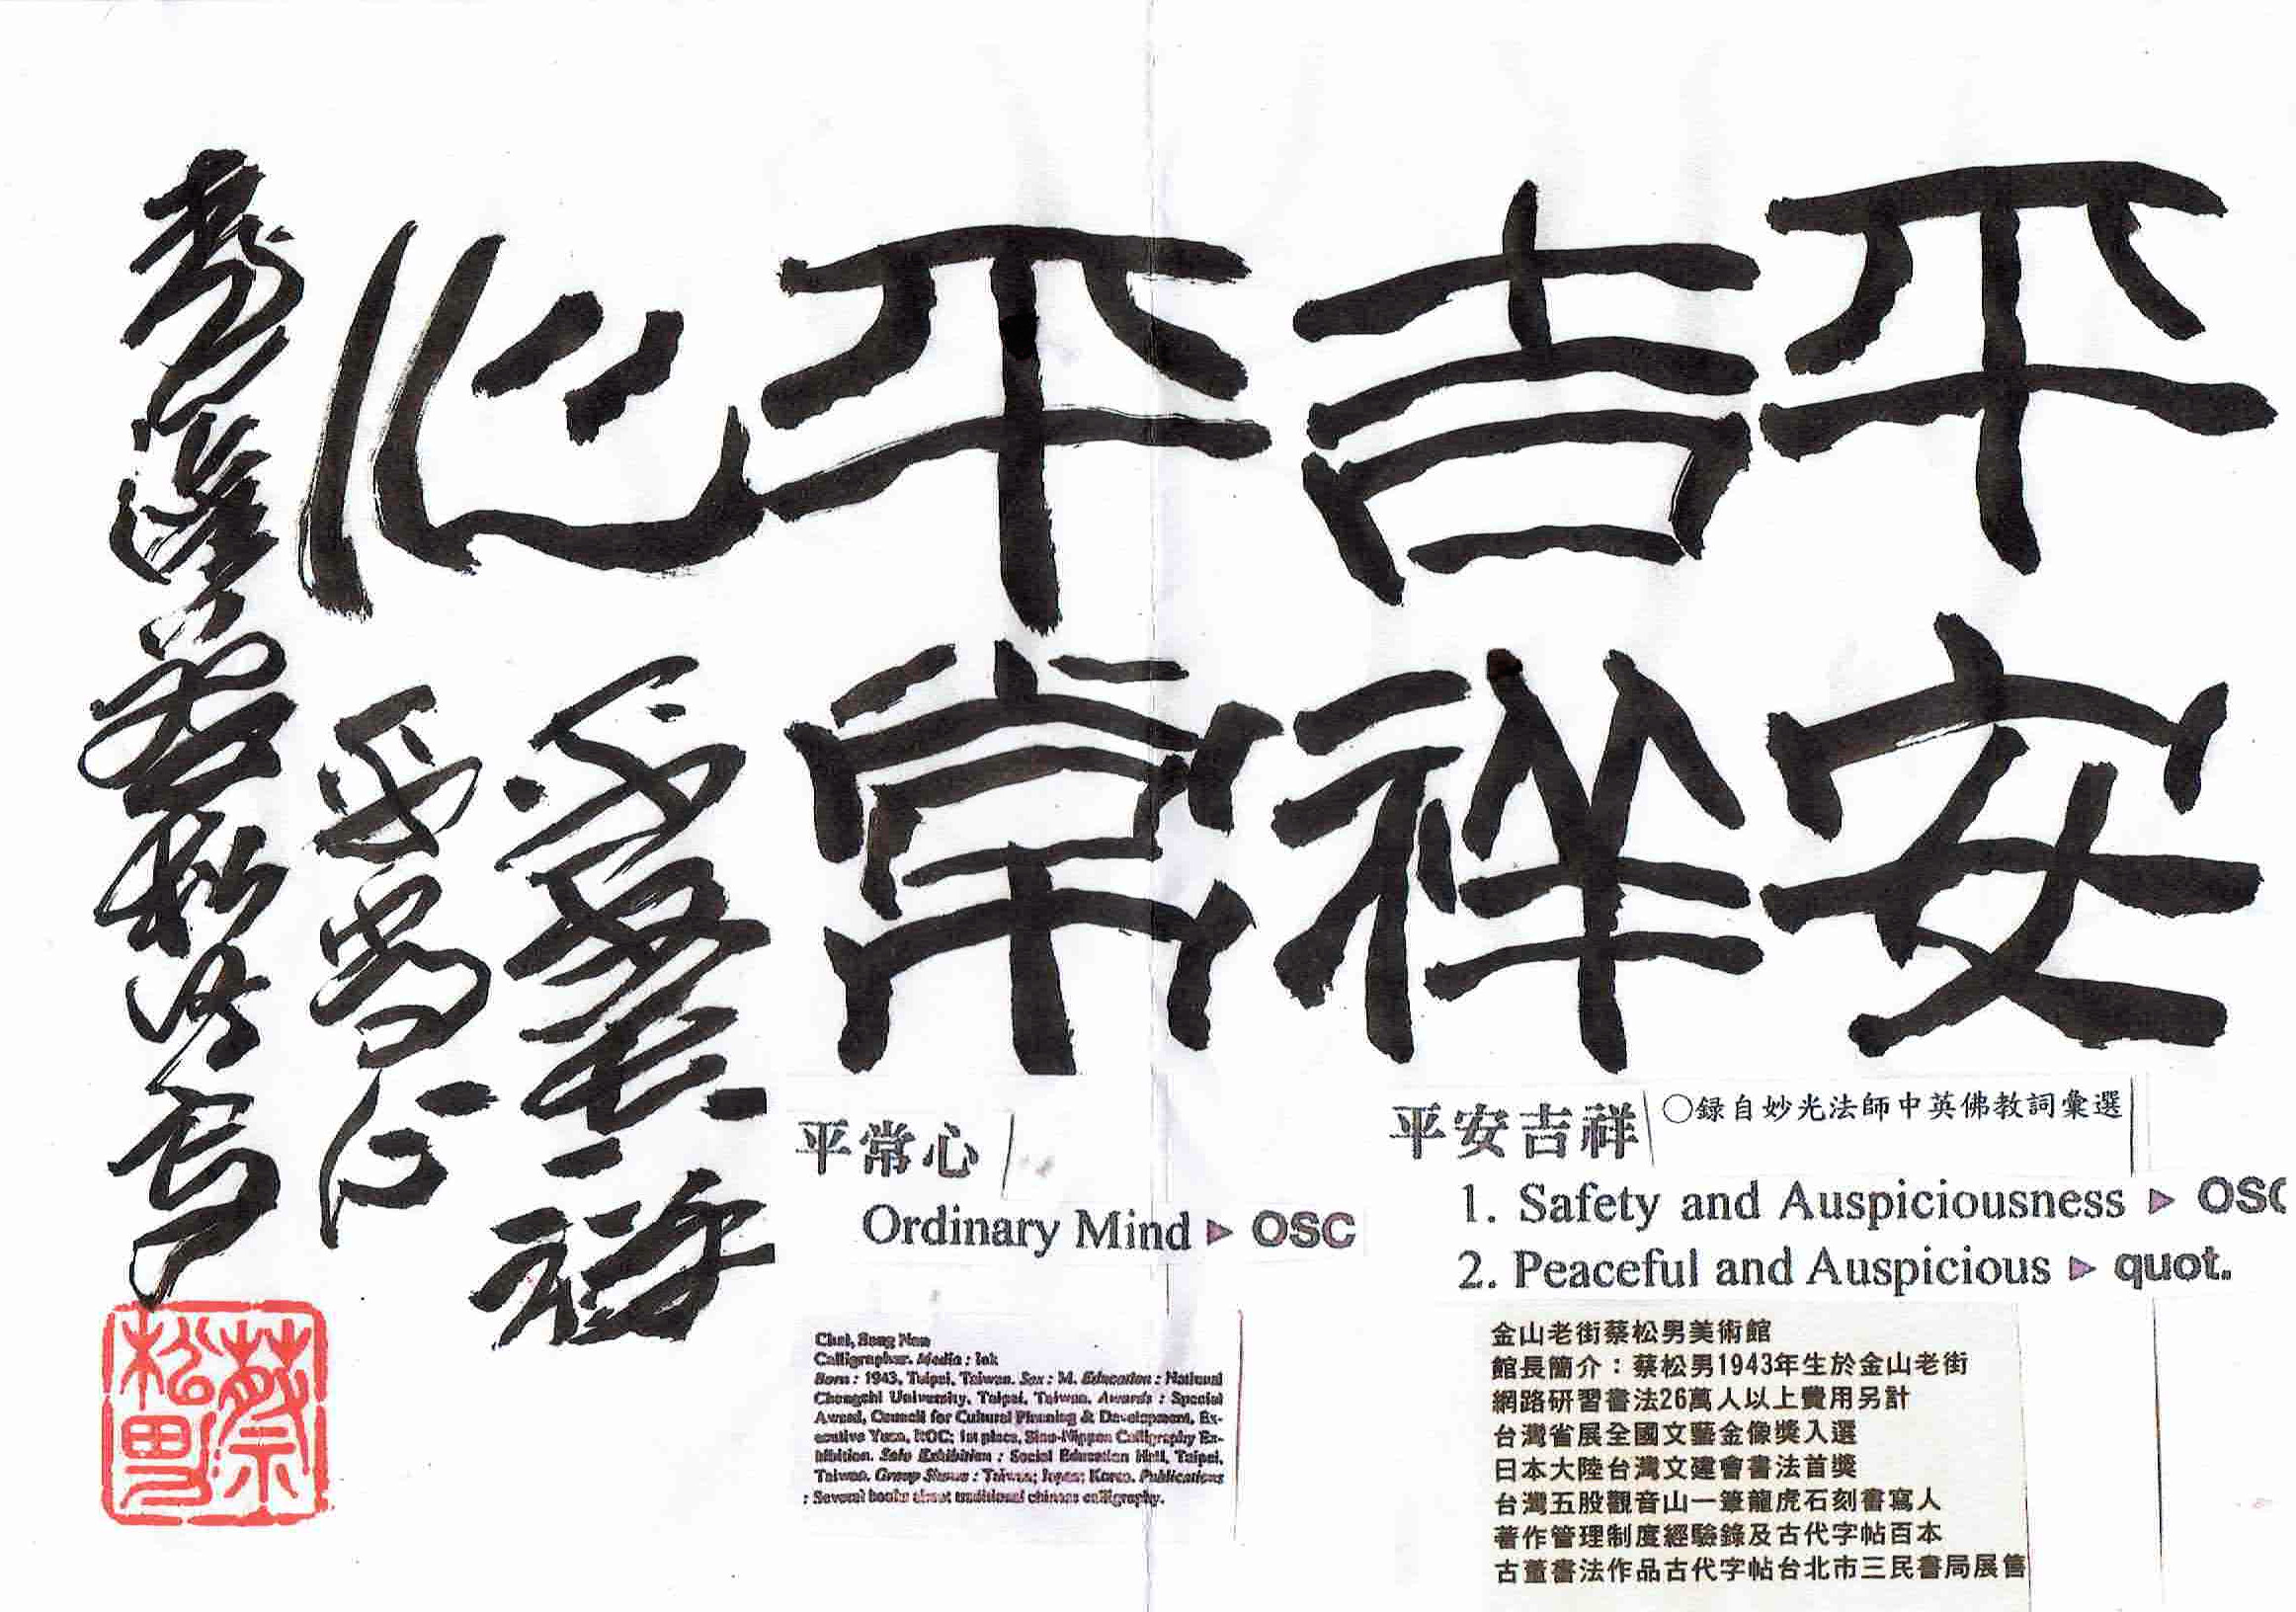 平安
吉祥
平常
心
平安吉祥
○録自妙光法師中英佛教詞彙選
1. Safety and Auspiciousness ▷ OSC
2. Peaceful and Auspicious ▷ quot.
平常心
Ordinary Mind ▷ OSC
金山老街蔡松男美術館
館長簡介：蔡松男1943年生於金山老街
網路研習書法26萬人以上費用另計
台灣省展全國文藝金像獎入選
日本大陸台灣文建會書法首獎
台灣五股觀音山一筆龍虎石刻書寫人
著作管理制度經驗錄及古代字帖百本
古董書法作品古代字帖台北市三民書局展售
Calligrapher. Media : Ink
Born : 1943, Taipei, Taiwan. Sex : M. Education : National
Chengchi University, Taipei, Taiwan. Awards : Special
Award, Council for Cultural Planning & Development, Ex-
ecutive Yuan, ROC; 1st place, Sino-Nippon Calligraphy Ex-
hibition. Solo Exhibition : Social Education Hall, Taipei,
Taiwan. Group Shows : Taiwan; Japan; Korea. Publications
: Several books about traditional chinese calligraphy.
蔡松男